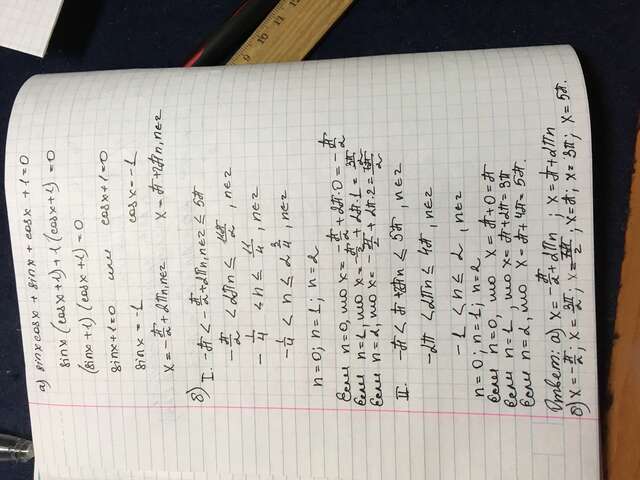 а) sinxcosx + sinx + cosx + 1=0
sinx (cosx+1)+1 (cosx+1) =0
(sinx+1) (cosx+1) =0
sinx+1=0 или cosx+1=0
sinx = -1 cosx=-1
x=-π/2 + 2πn, n∈z x= π+2πn, n∈z
б) I. -π < -π/2+2πn, n∈z ≤ 5π
-π/2 < 2πn ≤ 11π/2, n∈z
-1/4 < n ≤ 11/4, n∈z
-1/4 < n ≤ 2 3/4, n∈z
n=0; n=1; n=2
Если n=0, то x= -π/2 + 2π·0 = -π/2
Если n=1, то x= -π/2 + 2π·1 = 3π/2
Если n=2, то x= -π/2 + 2π·2 = 7π/2
II. -π < π+2πn ≤ 5π, n∈z
-2π < 2πn ≤ 4π, n∈z
-1 < n ≤ 2, n∈z
n=0; n=1; n=2
Если n=0, то x= π+0=π
Если n=1, то x= π+2π=3π
Если n=2, то x= π+4π = 5π.
Ответ: а) x= -π/2 + 2πn ; x= π+2πn
б) x=-π/2; x= 3π/2; x=7π/2; x=π; x= 3π; x= 5π.
9 10 11 12